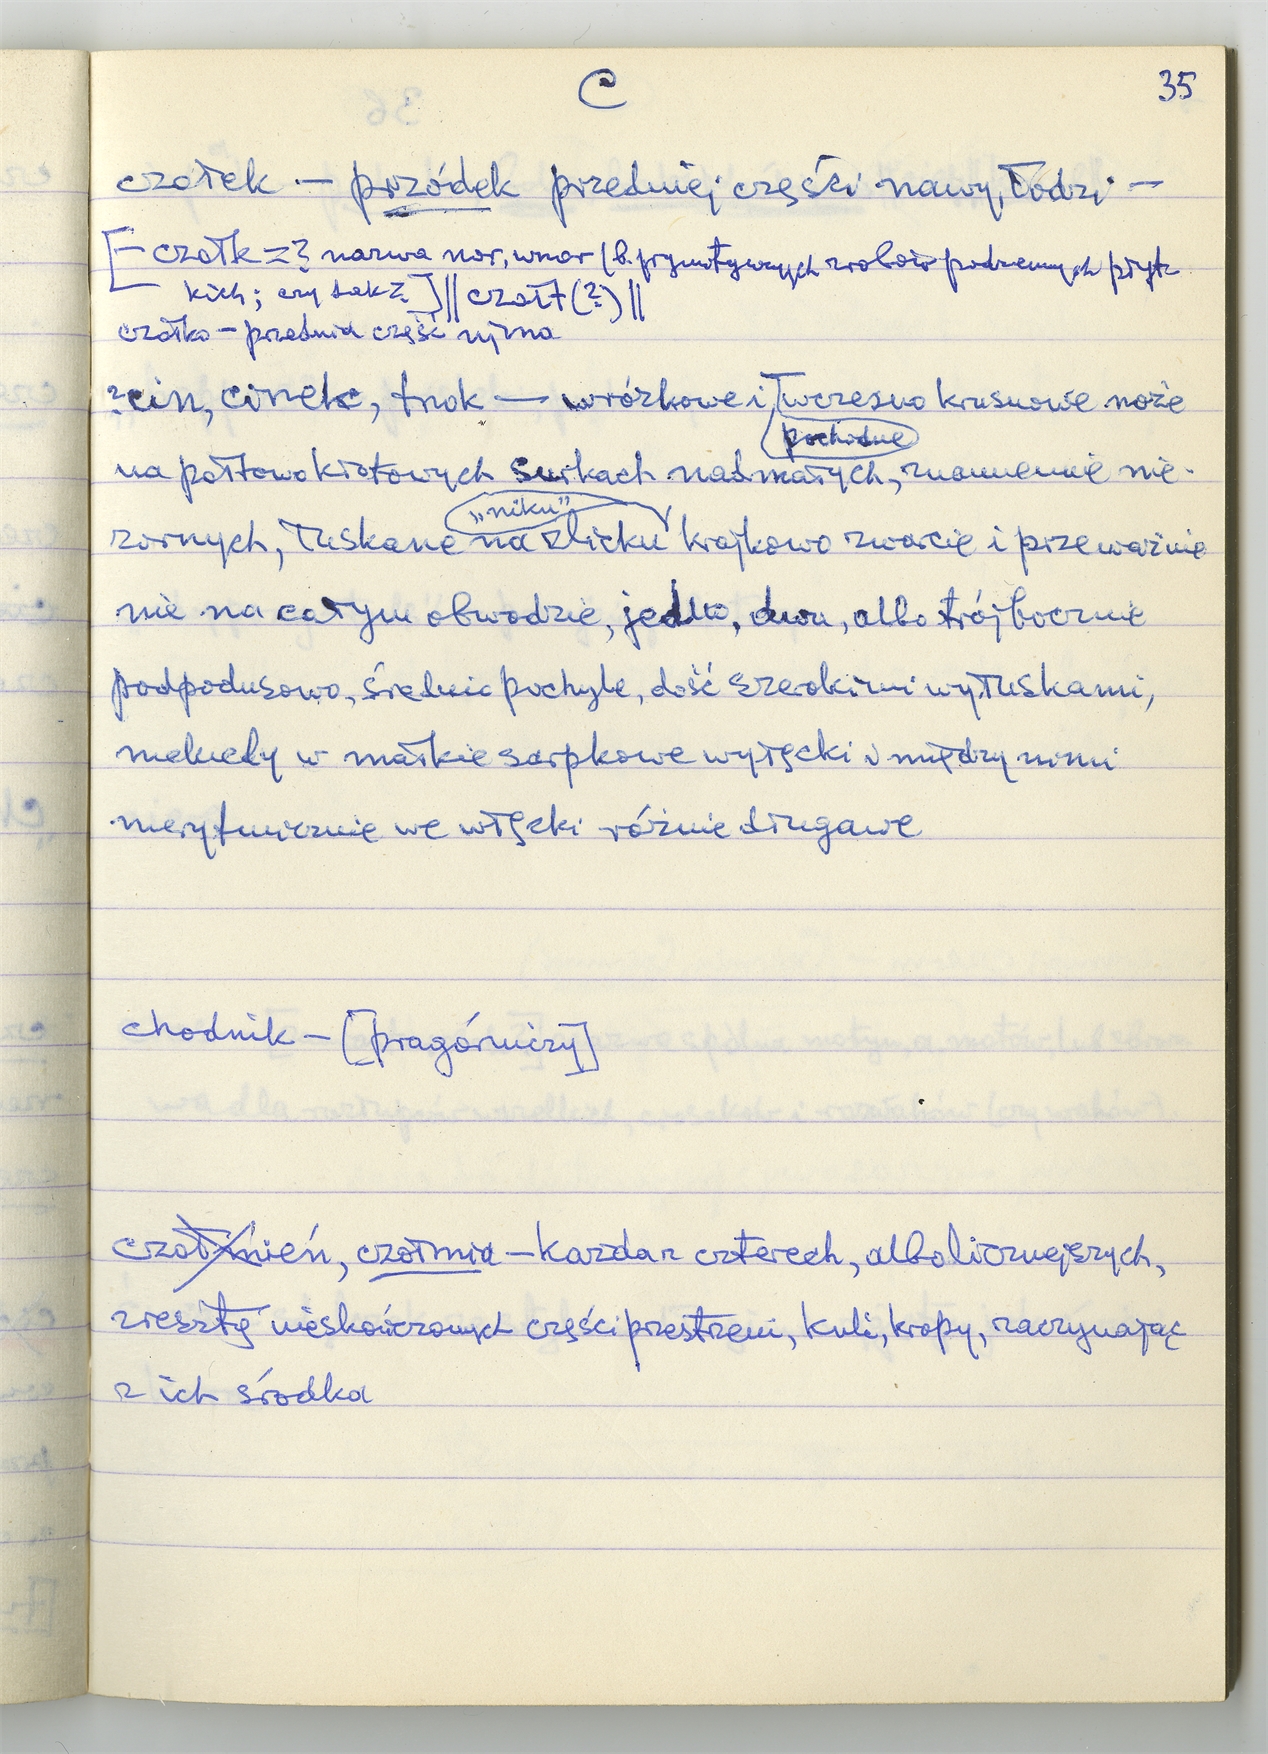 C 35
czołek — przódek przedniej części nawy, łodzi —
[— czółk = ? nazwa nor, wnor (b. prymitywnych zrobów podziemnych płyt-
kich; czy tak? ] || czółt (?) ||
czółko – przednia część
? cin, cinek, tnok — wiórkowe i wczesno krusnowe noże
pochodne
na połłowokłotowych surkach nadmałych, znamiennie nie-
„niku”
zornych, łuskane na zlicku krajkowo zwarcie i przeważnie
nie na całym obwodzie, jedno, dwu, albo trójbocznie
podpodusowo, średnio pochyłe, dość szerokimi wyłuskami,
niekiedy w małkie sarpkowe wyłęcki i między nimi
nierytmicznie we włęcki różnie długawe
chodnik – [pragórniczy]
czołmień, czołmia – każda z czterech, albo liczniejszych,
zresztą nieskończonych części przestrzeni, kuli, kropy, zaczynając
z ich środka